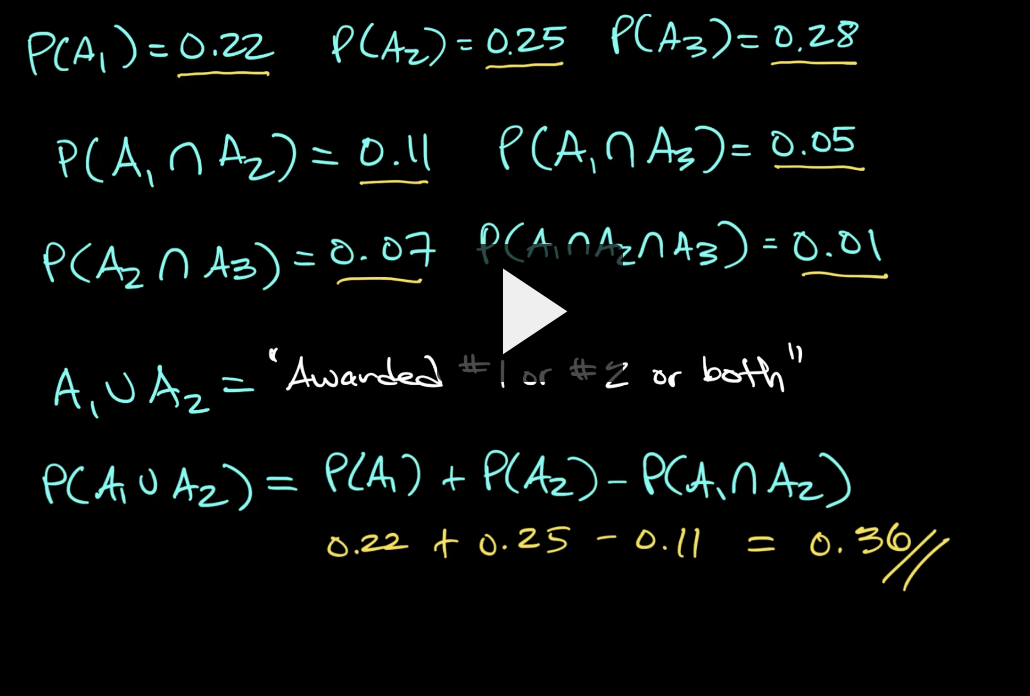 P(A₁) = 0.22 P(A₂) = 0.25 P(A₃) = 0.28
P(A₁ ∩ A₂) = 0.11 P(A₁ ∩ A₃) = 0.05
P(A₂ ∩ A₃) = 0.07 P(A₁ ∩ A₂ ∩ A₃) = 0.01
A₁ ∪ A₂ = "Awarded #1 or #2 or both"
P(A₁ ∪ A₂) = P(A₁) + P(A₂) - P(A₁ ∩ A₂)
0.22 + 0.25 - 0.11 = 0.36//